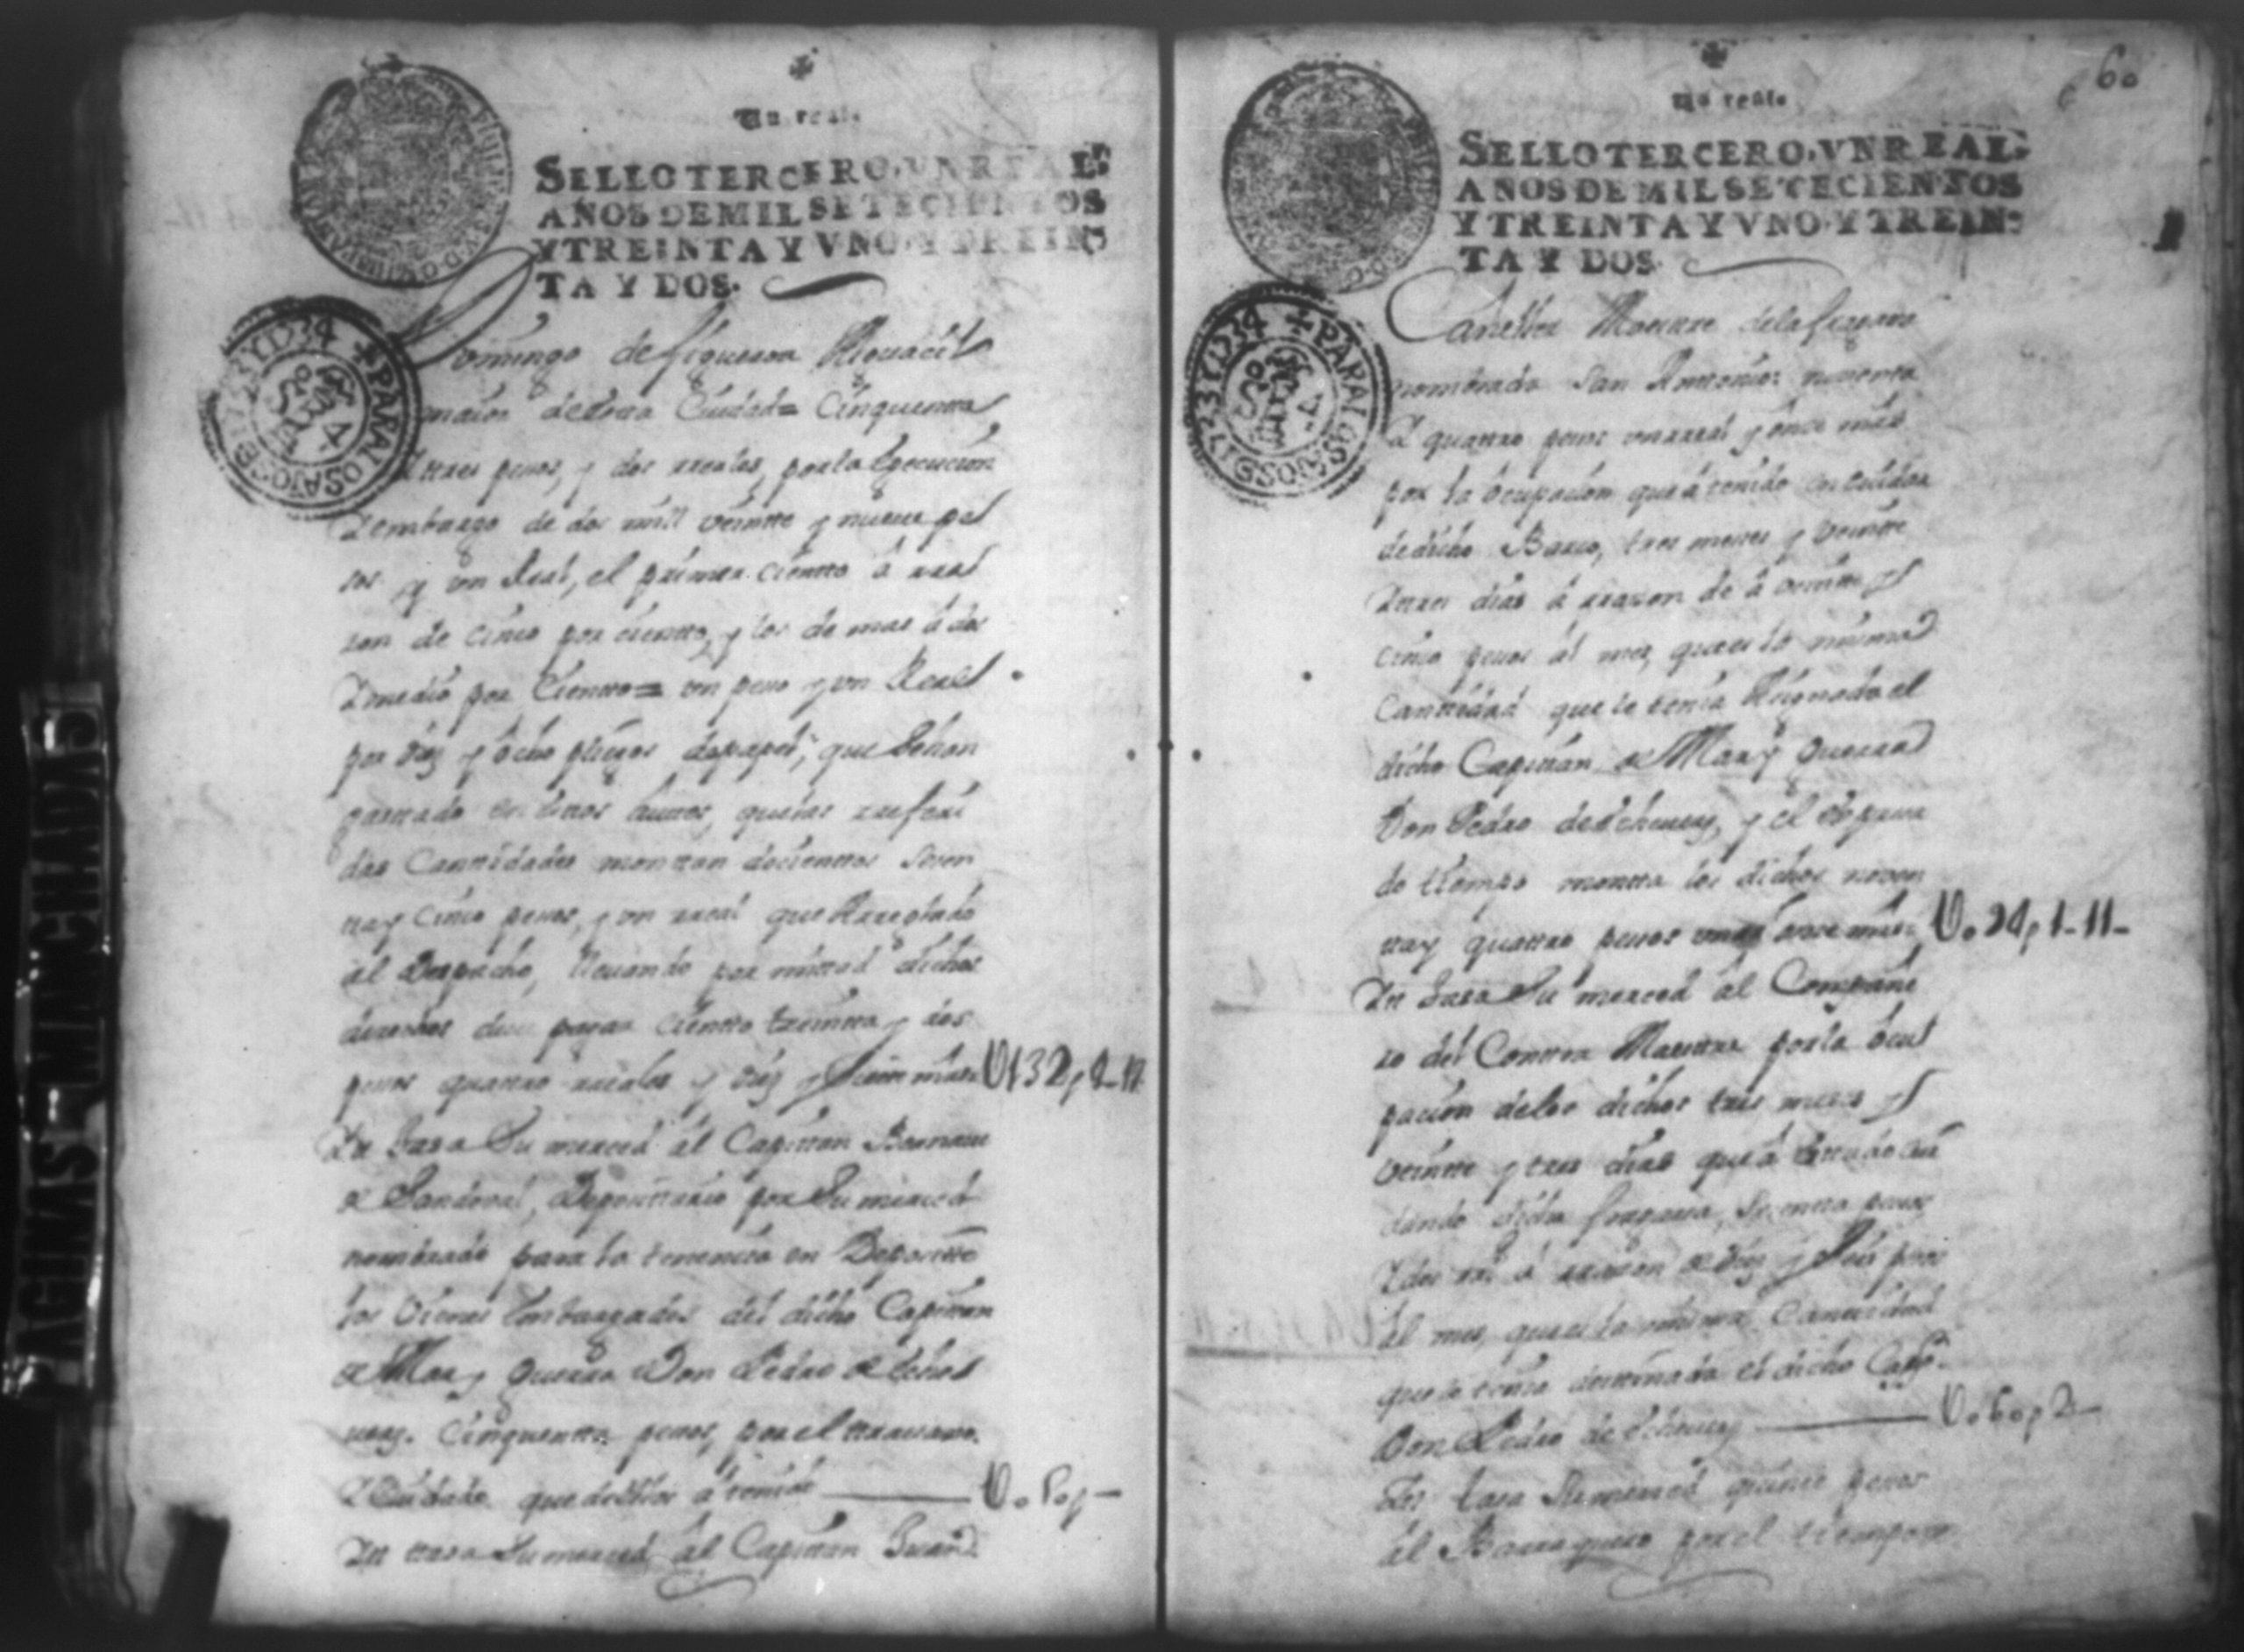 Un real.
SELLO TERCERO, VN REAL,
AÑOS DE MIL SETECIENTOS
Y TREINTA Y VNO, Y TREIN-
TA Y DOS.
+ PARA LOS AÑOS DE 1733 Y 1734
Domingo de figueroa Alguacil
maior desta Ciudad = Cinquenta
Y tres pesos, y dos rreales, por la Egecucion
Y embargo de dos mill veinte y nueve pe
sos y un Real, el primer ciento á rra
son de cinco por ciento, y los de mas á dos
Y medio por Ciento = un peso y un Real
por diez y ócho pliegos de papel, que sehan
gastado en estos auttos, que las rreferi
das Canttidades monttan docientos sesen
tta y Cinco pesos, y un rreal que Arreglado
al Despacho, lleuando por mittad dichos
derechos deue pagar Ciento treintta y dos
pesos quattro rreales y diez y siete mrs. U132p 4-17
Ytt tasa Su merced al Capittan
de Sandoval, Deposittario por Su merced
nombrado para la tenencia en Deposito
los vienes Embargados del dicho Capittan
de Mar y guerra Don Pedro de Eche
uers. Cinquentta pesos, por el ttrauajo
Y Cuidado que de ellos á tenido U050p-
Ytt ttasa Su merced, al Capittan Juan
60
Un real.
SELLO TERCERO, VN REAL,
AÑOS DE MIL SETECIENTOS
Y TREINTA Y VNO, Y TREIN-
TA Y DOS.
+ PARA LOS AÑOS DE 1733 Y 1734
de la fragata
nombrada San Antonio: noventa
Y quattro pesos un rreal y ónce mrs
por la ócupacion que á tenido en cuidar
de dicho Barco, tres meses y veintte
Y tres dias á rrazon de á veintte y
cinco pesos al mes, que es la misma
Canttidad que le tenia Asignada el
dicho Capittan de Mar y guerra
Don Pedro de Echeuers, y el
do tiempo montta los dichos noven
tta y quattro pesos un rl y once mrs. U094p 1-11-
Ytt tasa Su merced al Compañe
ro del Conttra Maestre por la ócu
pacion de los dichos tres meses y
veintte y tres dias que á estado cui
dando dicha fragata, Sesentta pesos
Y dos rrs á rrazon de diez y Seis pesos
al mes, que es la misma Canttidad
que le tenia desttinada el dicho Cappn.
Don Pedro de Echeuers U060p 2-
Ytt tasa Su merced quinse pesos
al por el tiempo